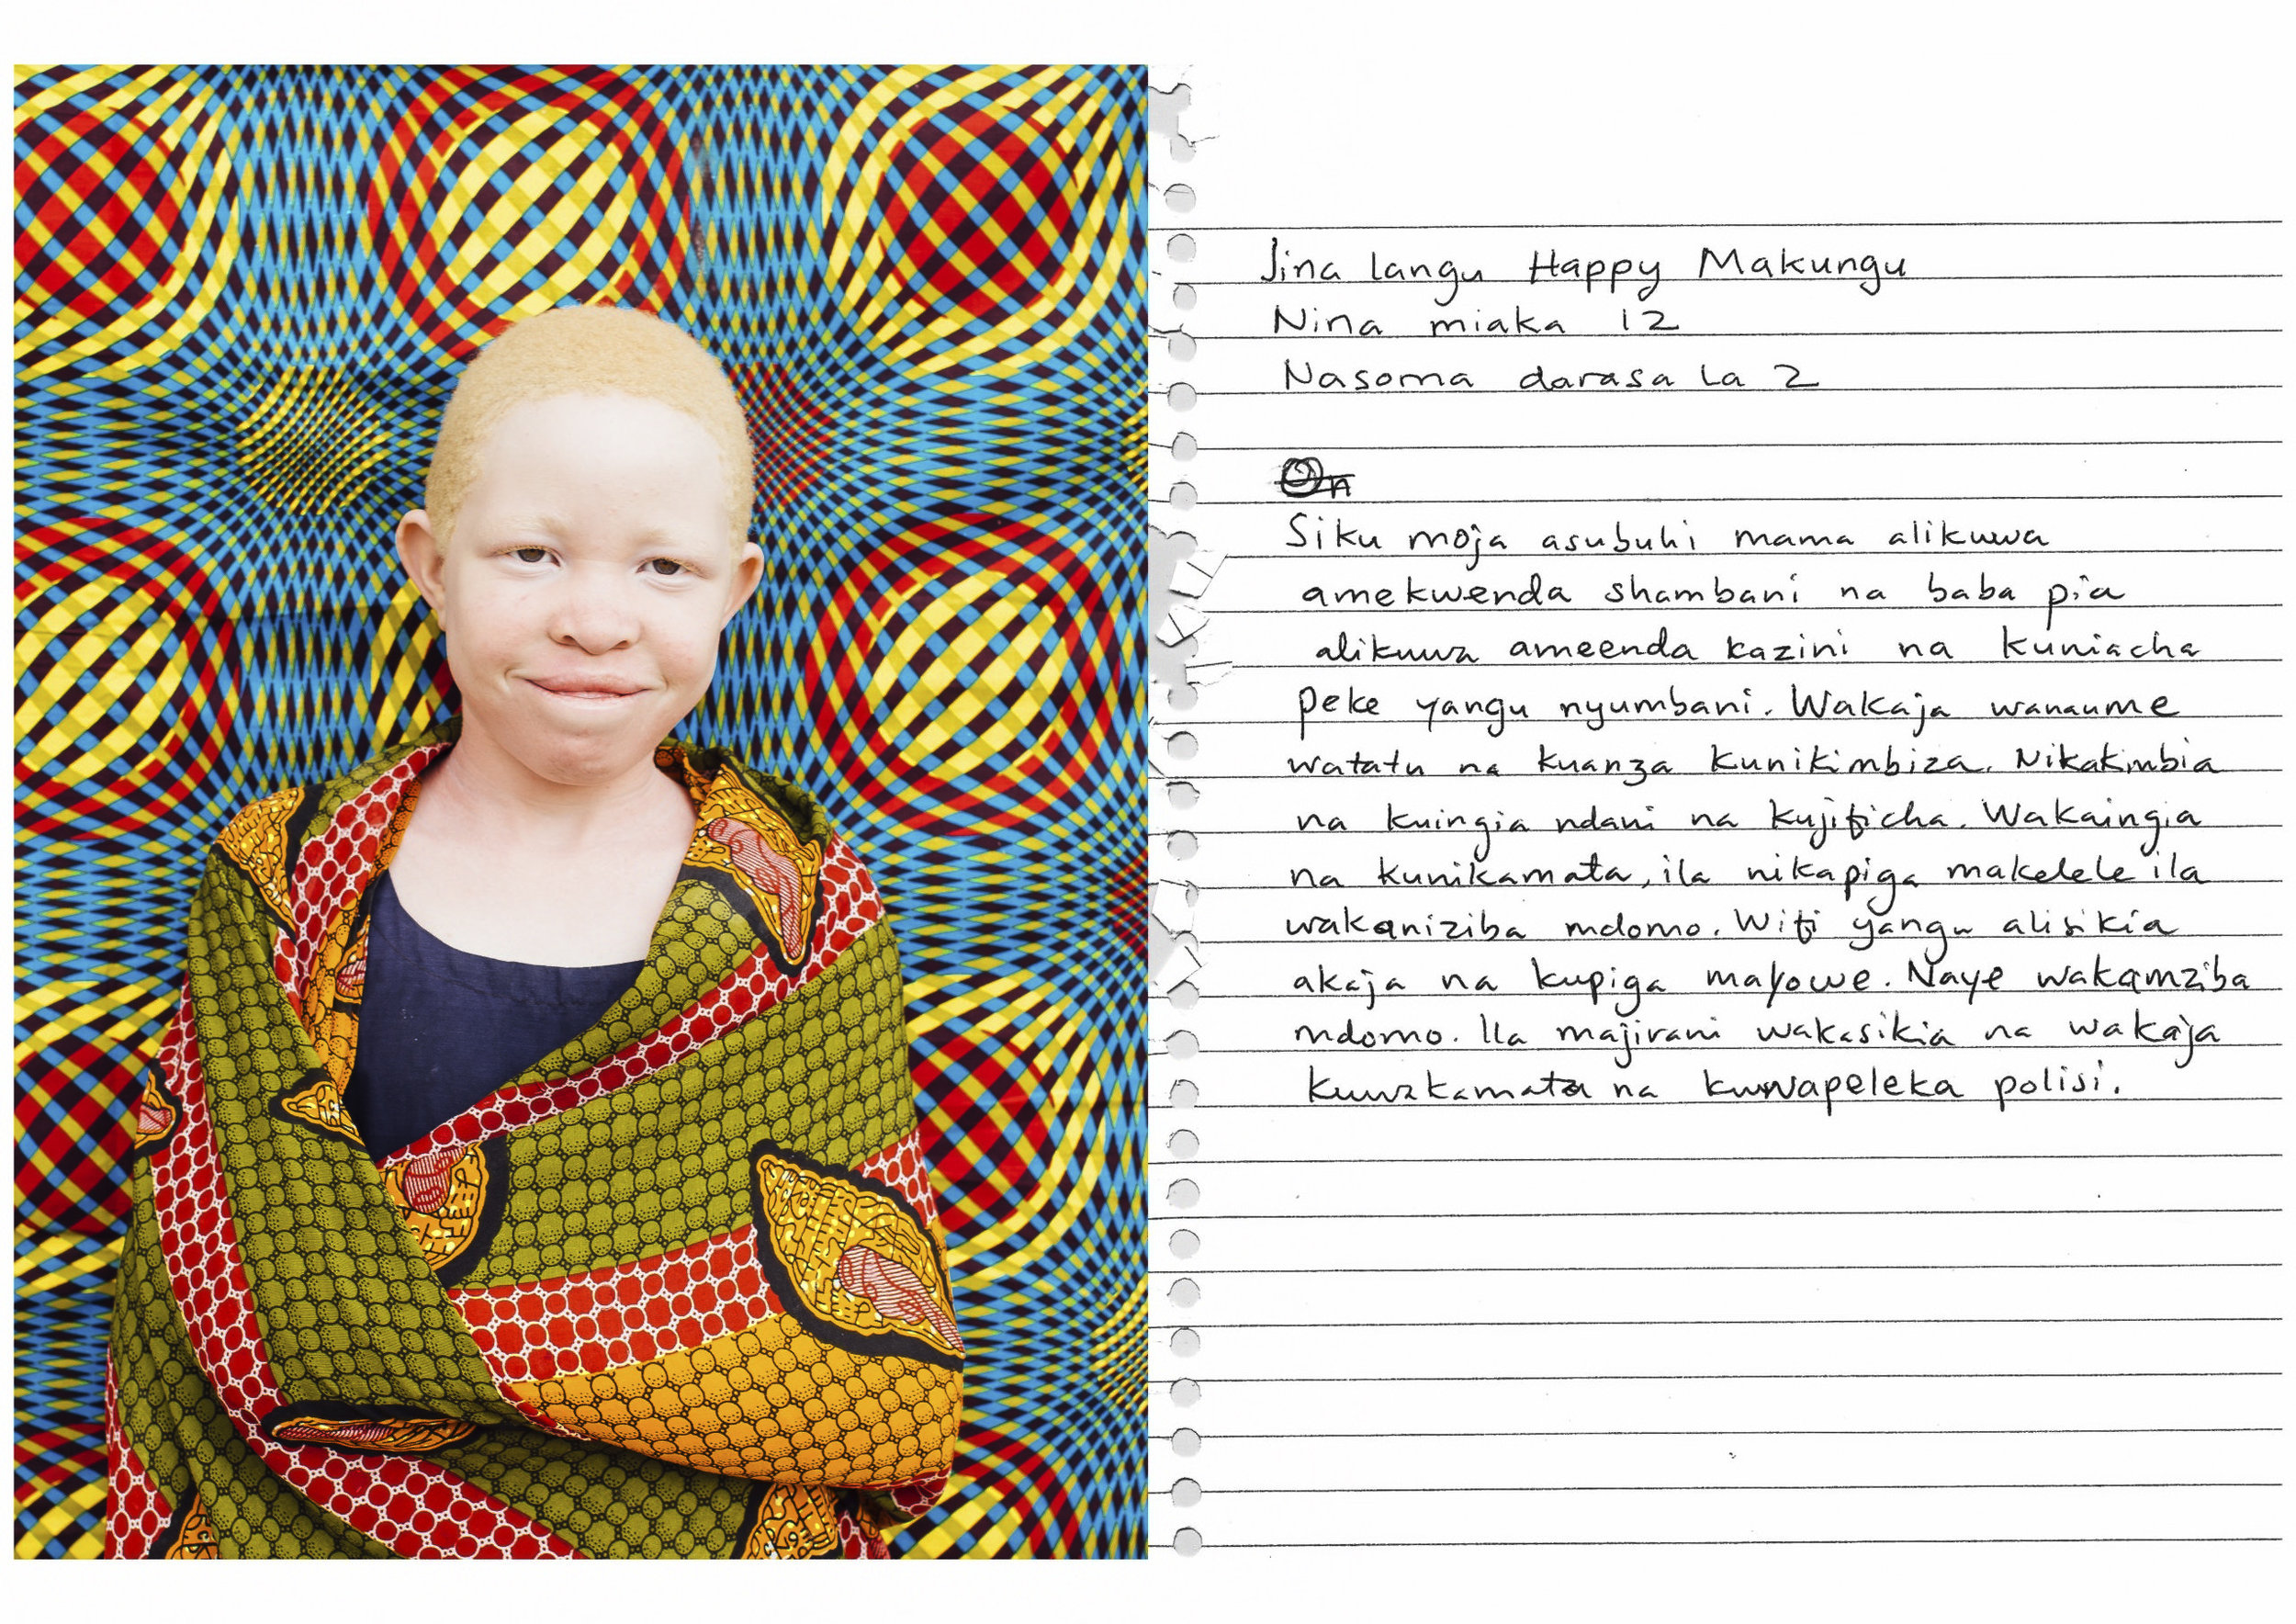 Jina langu Happy Makungu
Nina miaka 12
Nasoma darasa la 2
On
Siku moja asubuhi mama alikuwa
amekwenda shambani na baba pia
alikuwa ameenda kazini na kuniacha
peke yangu nyumbani. Wakaja wanaume
watatu na kuanza kunikimbiza. Nikakmbia
na kuingia ndani na kujificha. Wakaingia
na kunikamata, ila nikapiga makelele ila
wakaniziba mdomo. Wifi yangu alisikia
akaja na kupiga mayowe. Naye wakamziba
mdomo. Ila majirani wakasikia na wakaja
kuwakamata na kuwapeleka polisi.